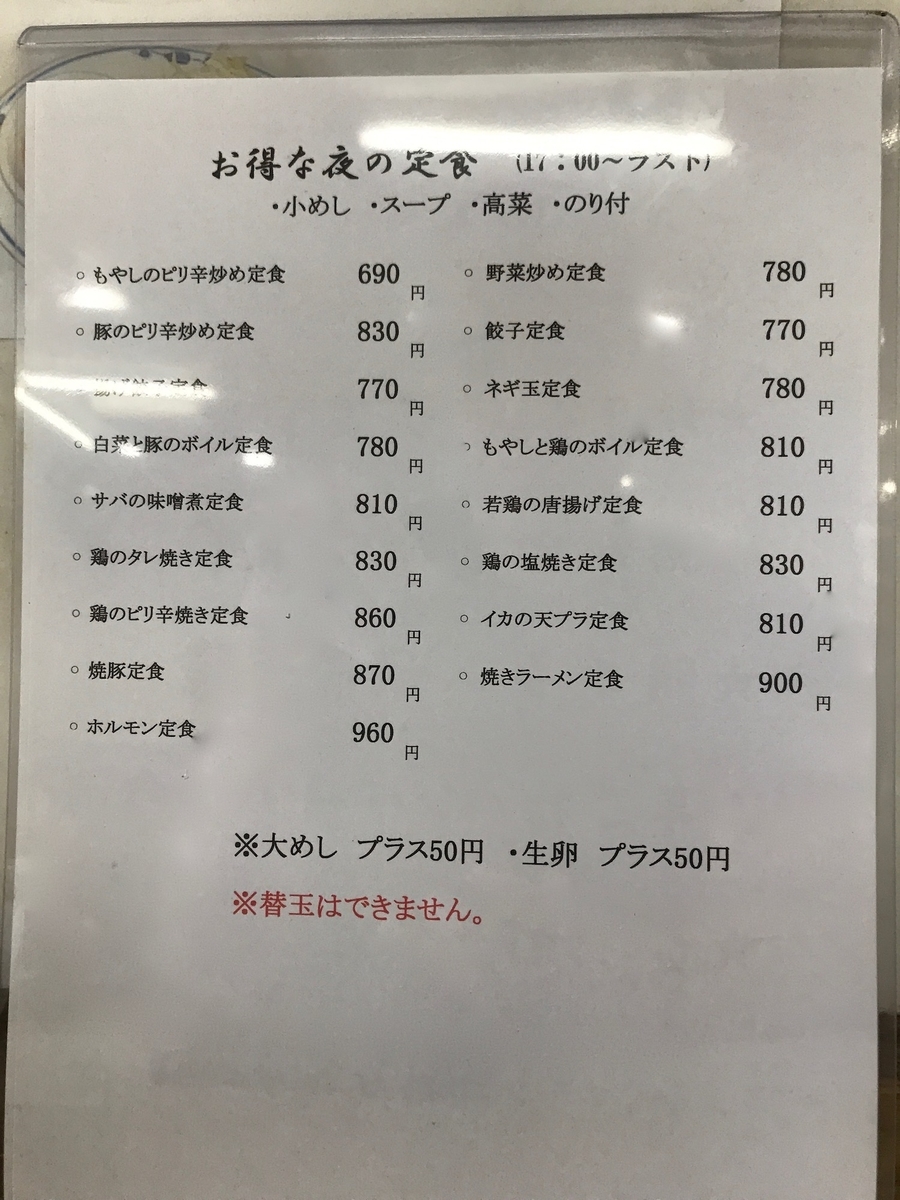 お得な夜の定食 (17:00~ラスト)
・小めし ・スープ ・高菜 ・のり付
○ もやしのピリ辛炒め定食 690円 ○ 野菜炒め定食 780円
○ 豚のピリ辛炒め定食 830円 ○ 餃子定食 770円
揚げ餃子定食 770円 ○ ネギ玉定食 780円
○ 白菜と豚のボイル定食 780円 ○ もやしと鶏のボイル定食 810円
○ サバの味噌煮定食 810円 ○ 若鶏の唐揚げ定食 810円
○ 鶏のタレ焼き定食 830円 ○ 鶏の塩焼き定食 830円
○ 鶏のピリ辛焼き定食 860円 ○ イカの天プラ定食 810円
○ 焼豚定食 870円 ○ 焼きラーメン定食 900円
○ ホルモン定食 960円
※大めし プラス50円 ・生卵 プラス50円
※替玉はできません。